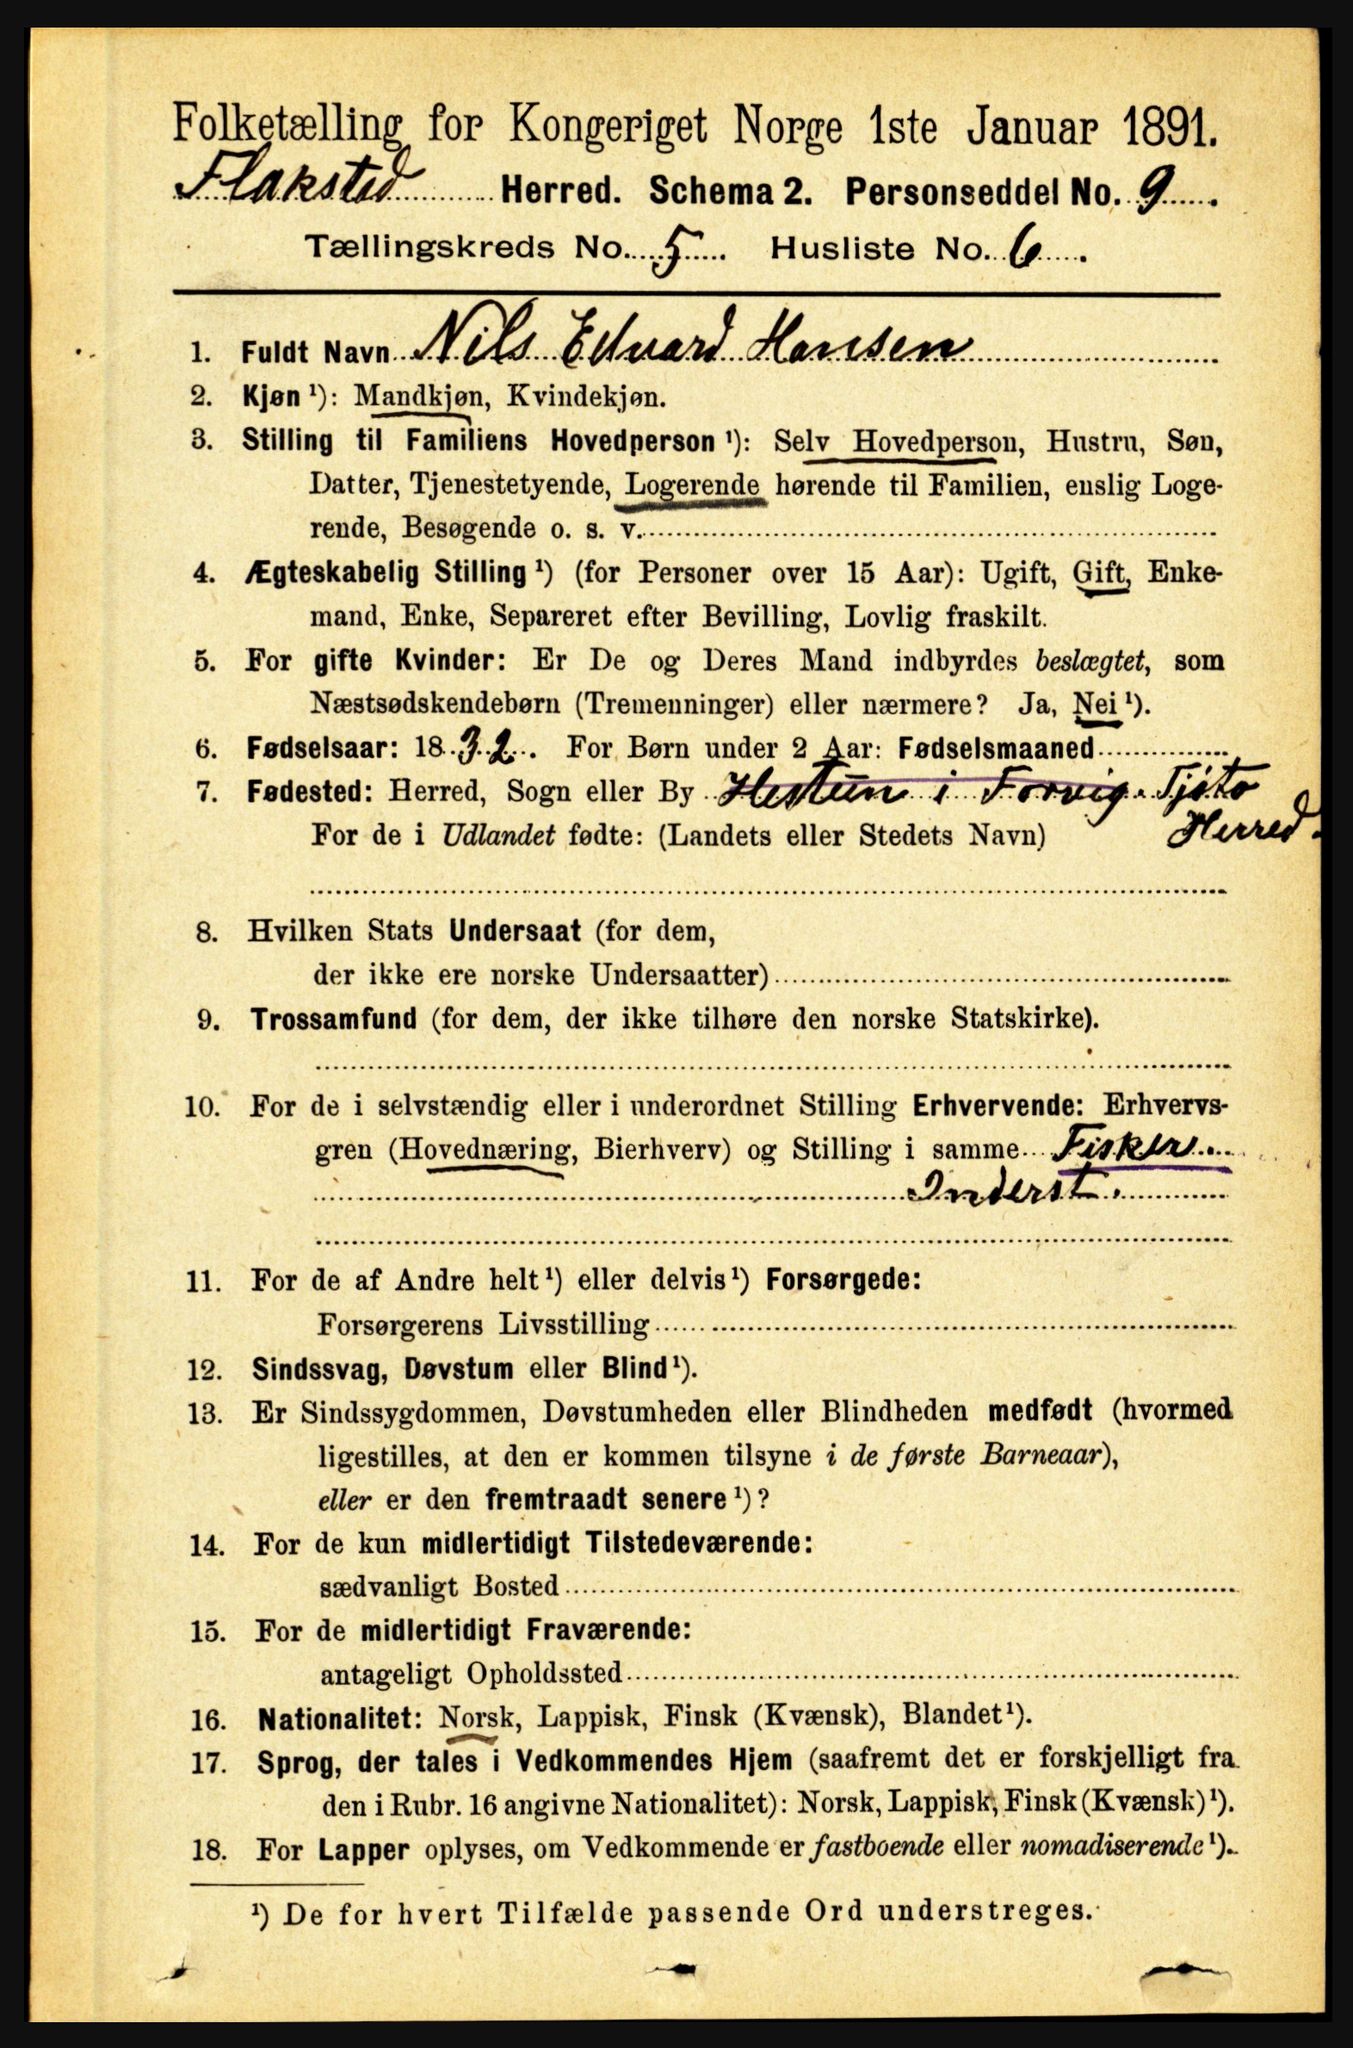 Folketælling for Kongeriget Norge 1ste Januar 1891.
Flaksted Herred. Schema 2. Personseddel No. 9.
Tællingskreds No. 5. Husliste No. 6.
1. Fuldt Navn Nils Edvard Hansen
2. Kjøn ¹): Mandkjøn, Kvindekjøn.
3. Stilling til Familiens Hovedperson ¹): Selv Hovedperson, Hustru, Søn,
Datter, Tjenestetyende, Logerende hørende til Familien, enslig Loge-
rende, Besøgende o. s. v.
4. Ægteskabelig Stilling ¹) (for Personer over 15 Aar): Ugift, Gift, Enke-
mand, Enke, Separeret efter Bevilling, Lovlig fraskilt.
5. For gifte Kvinder: Er De og Deres Mand indbyrdes beslægtet, som
Næstsødskendebørn (Tremenninger) eller nærmere? Ja, Nei ¹).
6. Fødselsaar: 1832. For Børn under 2 Aar: Fødselsmaaned
7. Fødested: Herred, Sogn eller By Hestun i Forvig. Tjøto
For de i Udlandet fødte: (Landets eller Stedets Navn) Herred.
8. Hvilken Stats Undersaat (for dem,
der ikke ere norske Undersaatter)
9. Trossamfund (for dem, der ikke tilhøre den norske Statskirke).
10. For de i selvstændig eller i underordnet Stilling Erhvervende: Erhvervs-
gren (Hovednæring, Bierhverv) og Stilling i samme Fisker
Inderst.
11. For de af Andre helt ¹) eller delvis ¹) Forsørgede:
Forsørgerens Livsstilling
12. Sindssvag, Døvstum eller Blind ¹).
13. Er Sindssygdommen, Døvstumheden eller Blindheden medfødt (hvormed
ligestilles, at den er kommen tilsyne i de første Barneaar),
eller er den fremtraadt senere ¹)?
14. For de kun midlertidigt Tilstedeværende:
sædvanligt Bosted
15. For de midlertidigt Fraværende:
antageligt Opholdssted
16. Nationalitet: Norsk, Lappisk, Finsk (Kvænsk), Blandet ¹).
17. Sprog, der tales i Vedkommendes Hjem (saafremt det er forskjelligt fra
den i Rubr. 16 angivne Nationalitet): Norsk, Lappisk, Finsk (Kvænsk) ¹).
18. For Lapper oplyses, om Vedkommende er fastboende eller nomadiserende ¹).
¹) De for hvert Tilfælde passende Ord understreges.